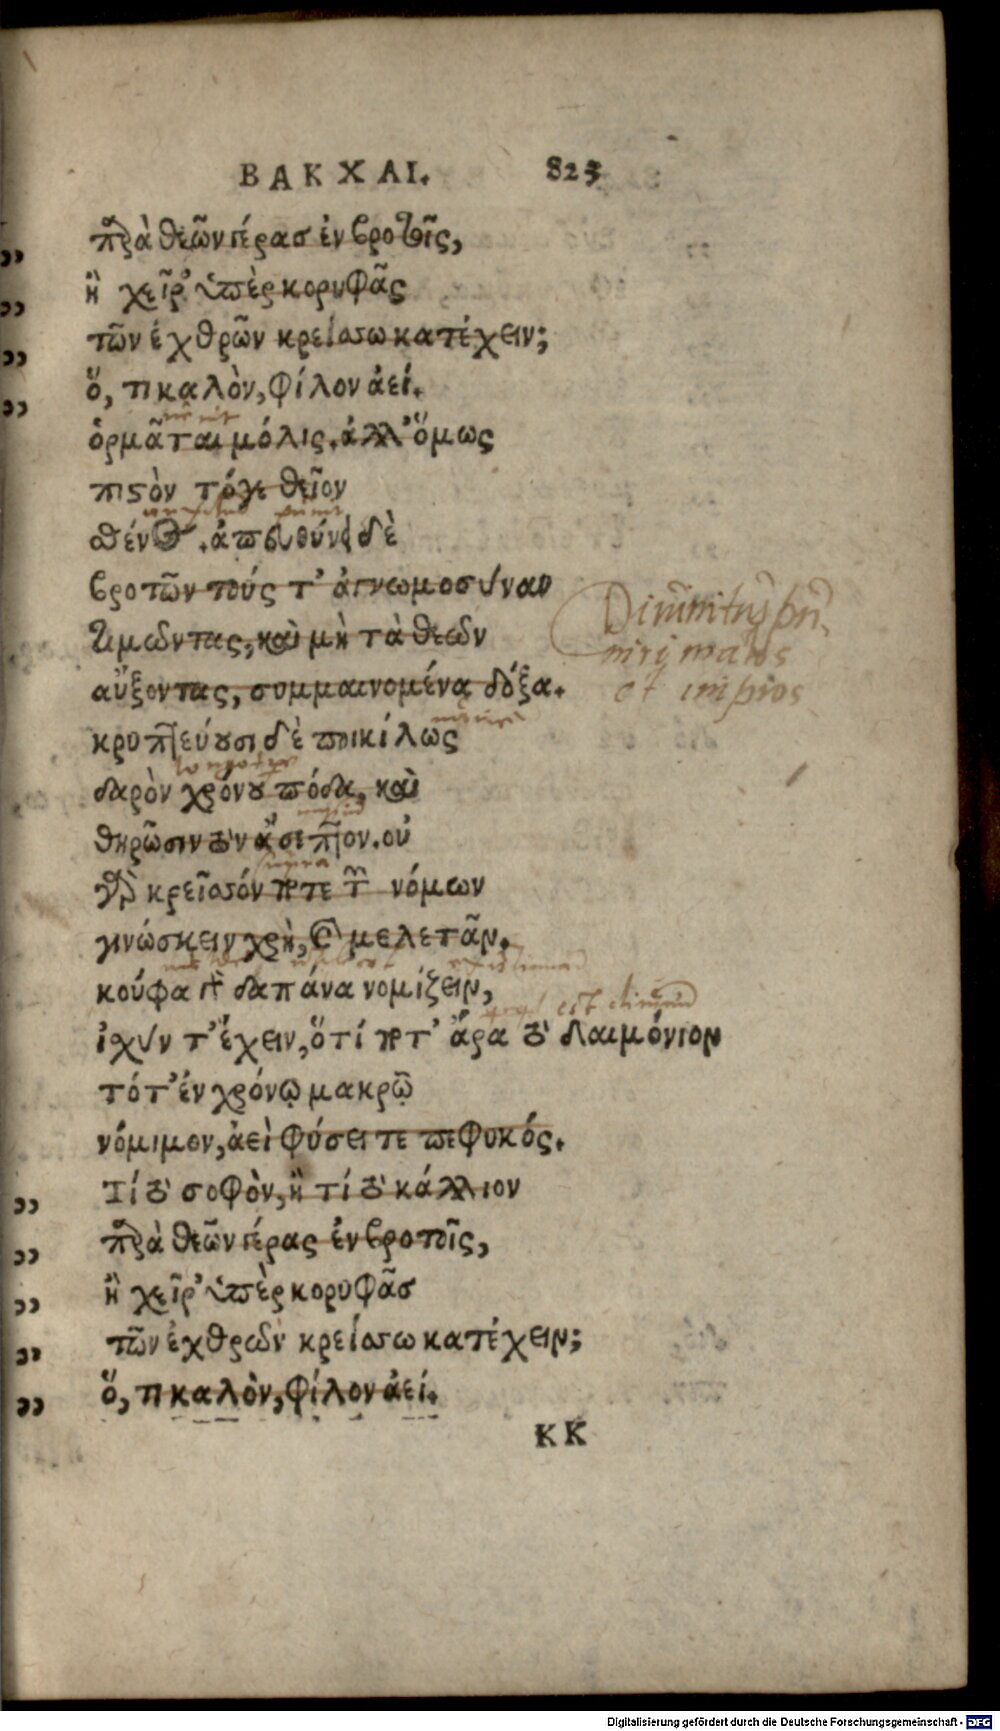 ΒΑΚΧΑΙ. 823
,, παρὰ θεῶν γέρασ ἐν βροτοῖς,
,, ἢ χεῖρ’ ὑπὲρ κορυφᾶς
,, τῶν ἐχθρῶν κρείσσω κατέχειν;
,, ὅ, τι καλὸν, φίλον ἀεί.
ὁρμᾶται μόλις. ἀλλ’ ὅμως
πιστὸν τόγε θεῖον
σθένος. ἀπευθύνει δὲ
βροτῶν τούς τ’ ἀγνωμοσύναν
τιμῶντας, καὶ μὴ τὰ θεῶν
αὔξοντας, συμμαινομένᾳ δόξᾳ.
κρυπτεύουσι δὲ ποικίλως
δαρὸν χρόνου πόδα, καὶ
θηρῶσιν τὸν ἄσεπτον. οὐ
γὰρ κρεῖσσόν ποτε τῶν νόμων
γινώσκειν χρὴ, καὶ μελετᾶν.
κούφα γὰρ δαπάνα νομίζειν,
ἰσχὺν τ’ ἔχειν, ὅτί ποτ’ ἄρα τὸ δαιμόνιον
τότ’ ἐν χρόνῳ μακρῷ
νόμιμον, ἀεὶ φύσει τε πεφυκός.
,, Τί τὸ σοφὸν, ἢ τί τὸ κάλλιον
,, παρὰ θεῶν γέρας ἐν βροτοῖς,
,, ἢ χεῖρ’ ὑπὲρ κορυφᾶσ
,, τῶν ἐχθρῶν κρείσσω κατέχειν;
,, ὅ, τι καλὸν, φίλον ἀεί.
ΚΚ
Divinitus pu-
niri malos
et impios
est divinum
Digitalisierung gefördert durch die Deutsche Forschungsgemeinschaft - DFG